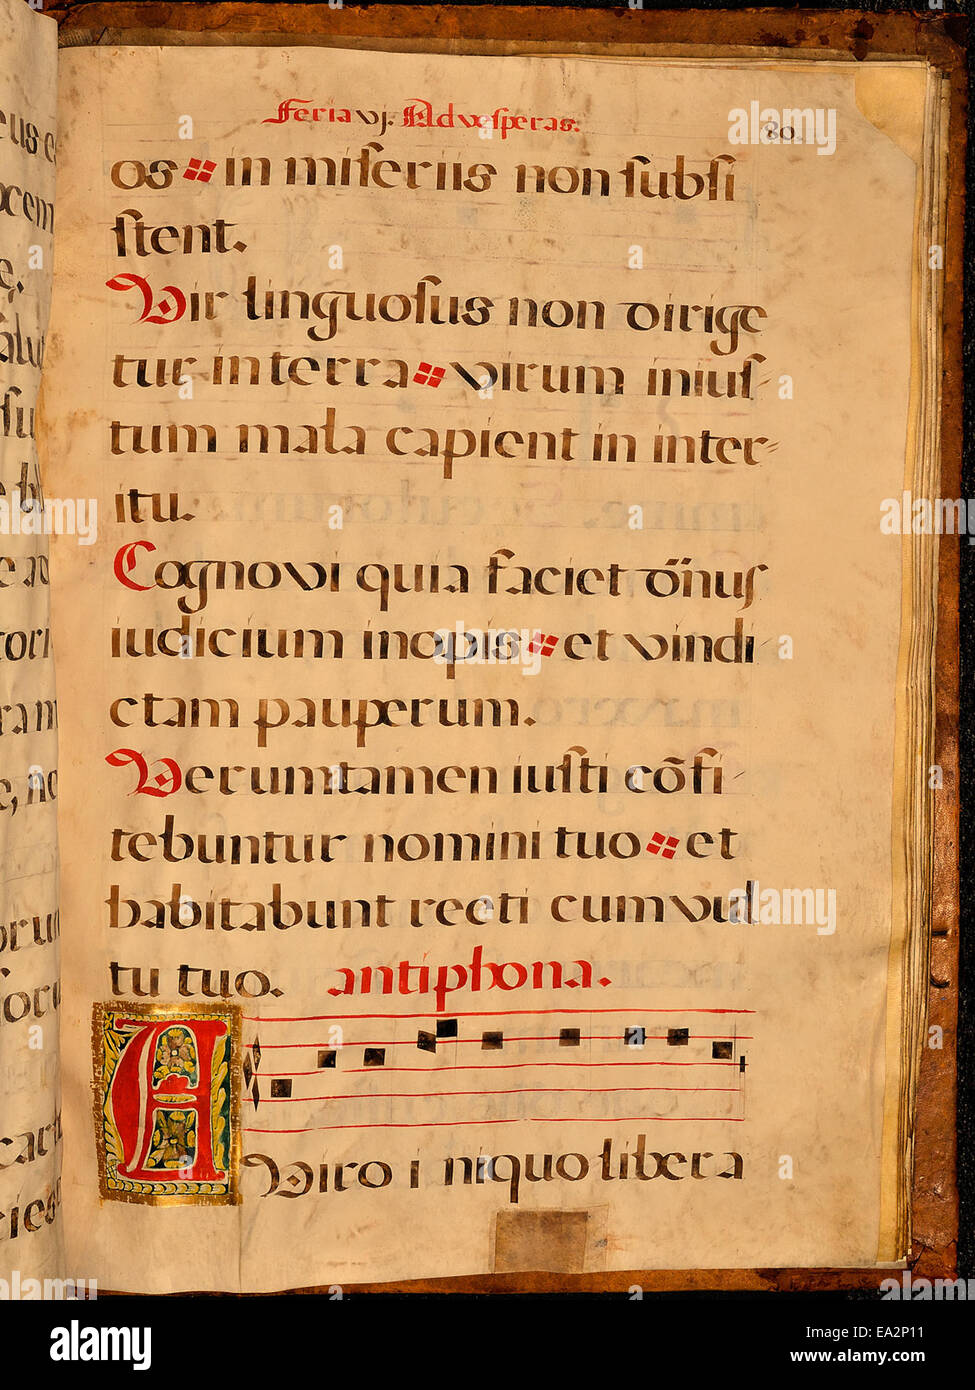 Feria vj. Ad vesperas.
80.
os in miseriis non subsi
stent.
Vir linguosus non dirige
tur in terra virum inius-
tum mala capient in inter-
itu.
Cognovi quia faciet dn̄us
iudicium inopis et vindi-
ctam pauperum.
Verumtamen iusti cōfi-
tebuntur nomini tuo et
habitabunt recti cum vul
tu tuo. antiphona.
A Viro iniquo libera
alamy
alamy stock photo
EA2P11
www.alamy.com